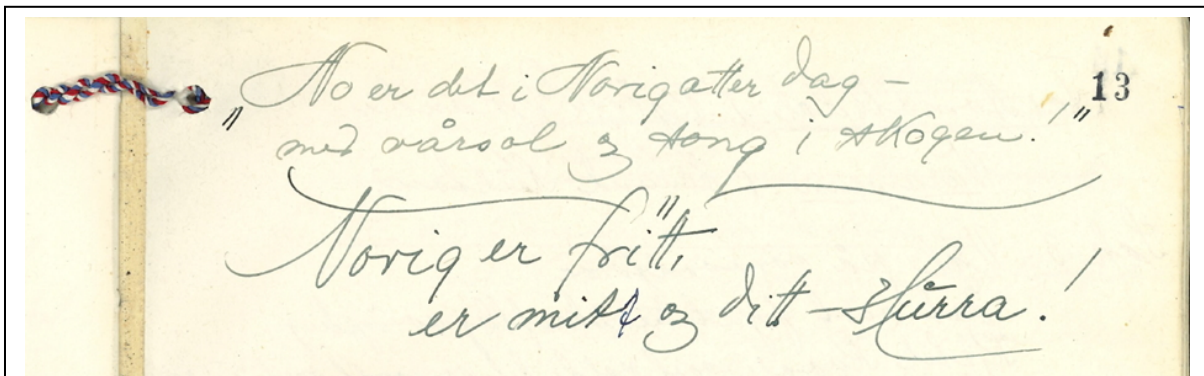 „No er det i Norig atter dag –
13
med vårsol og song i skogen!"
Norig er fritt,
er mitt og ditt – Hurra!